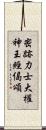 密跡力士大權
神王經偈頌